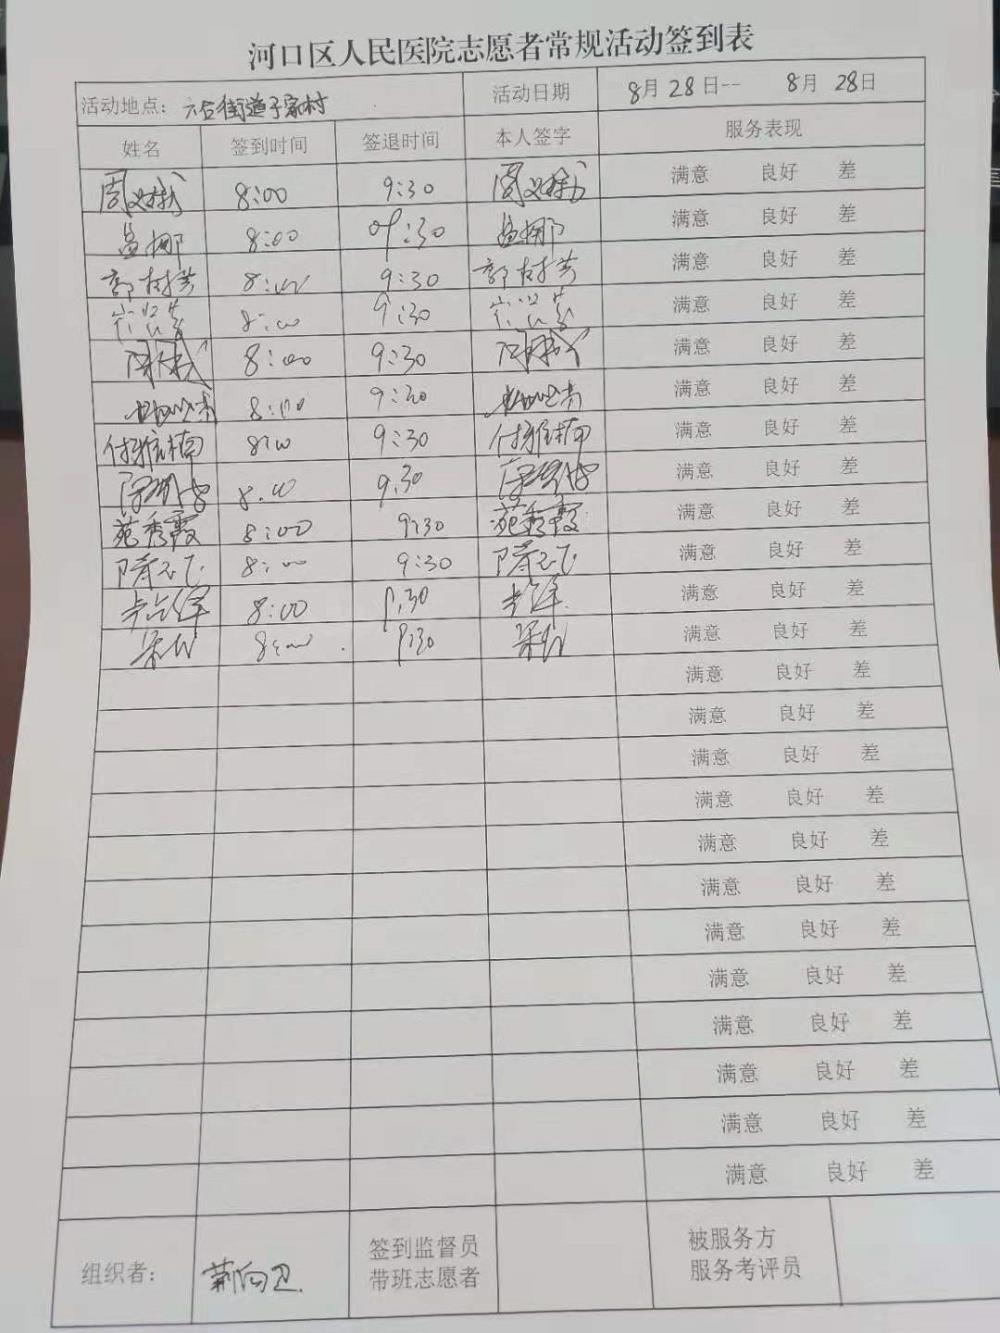 河口区人民医院志愿者常规活动签到表
活动地点: 六合街道于家村 活动日期 8月28日-- 8月28日
姓名 签到时间 签退时间 本人签字 服务表现
8:00 9:30 满意 良好 差
孟娜 8:00 9:30 孟娜 满意 良好 差
郭树芳 8:00 9:30 郭树芳 满意 良好 差
8:00 9:30 满意 良好 差
8:00 9:30 满意 良好 差
8:00 9:30 满意 良好 差
付雅楠 8:00 9:30 付雅楠 满意 良好 差
8:00 9:30 满意 良好 差
苑秀霞 8:00 9:30 苑秀霞 满意 良好 差
8:00 9:30 满意 良好 差
8:00 9:30 满意 良好 差
8:00 9:30 满意 良好 差
满意 良好 差
满意 良好 差
满意 良好 差
满意 良好 差
满意 良好 差
满意 良好 差
满意 良好 差
满意 良好 差
满意 良好 差
满意 良好 差
满意 良好 差
满意 良好 差
组织者: 签到监督员 被服务方
带班志愿者 服务考评员